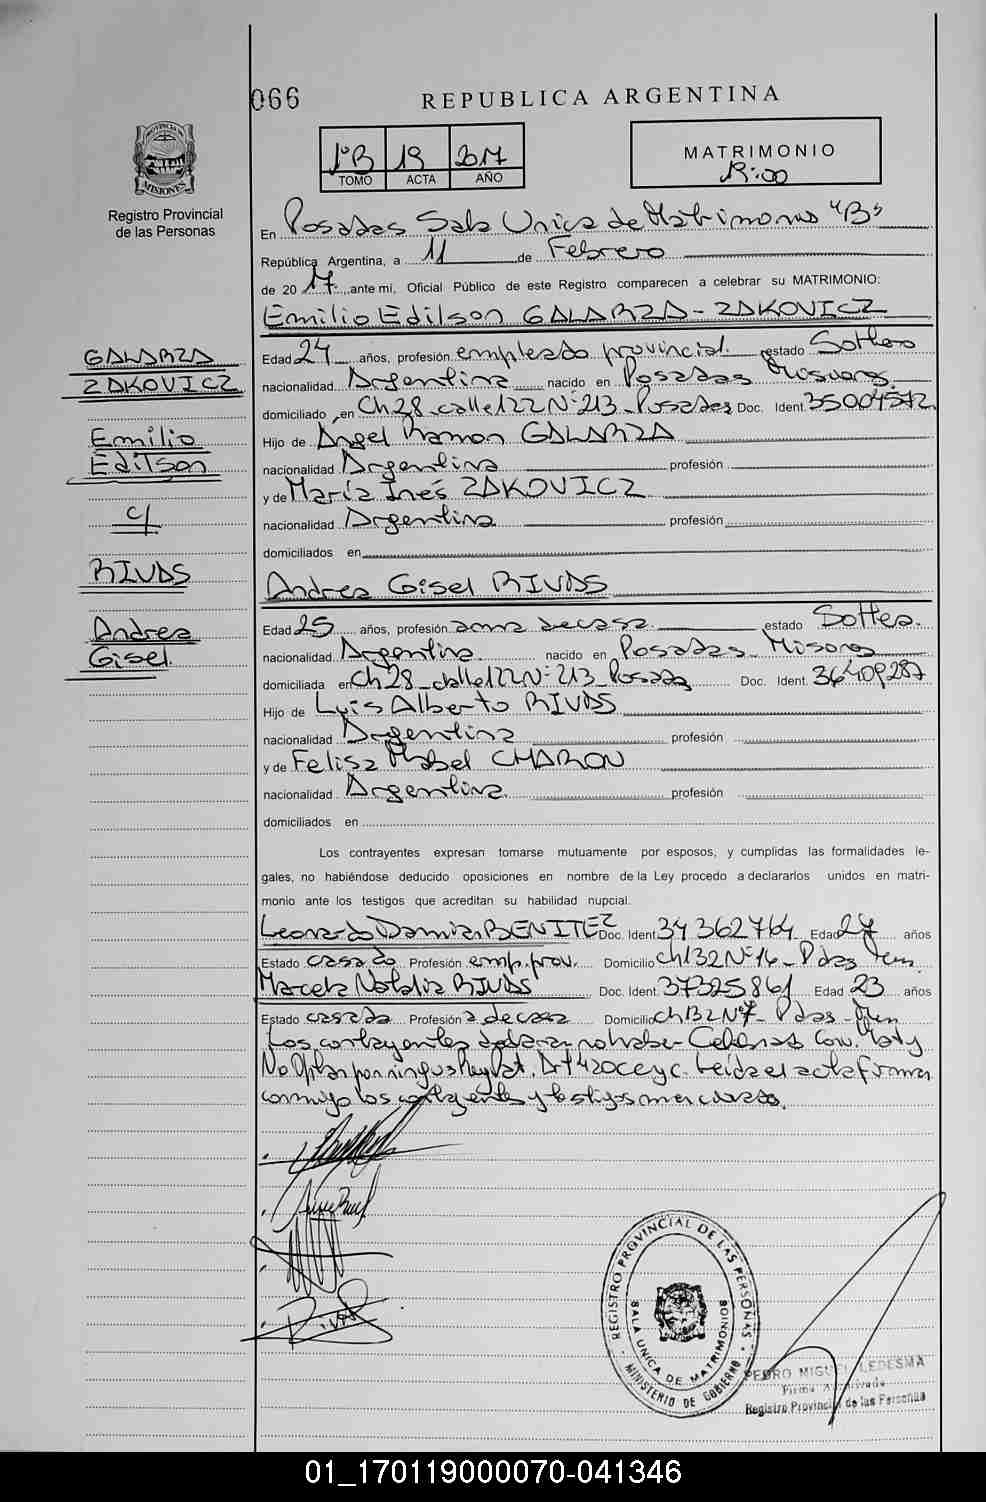 066
REPUBLICA ARGENTINA
PROVINCIA DE MISIONES
Registro Provincial
de las Personas
1ºB 19 2017
TOMO ACTA AÑO
MATRIMONIO
19:00
En Posadas Sala Unica de Matrimonios "B"
República Argentina, a 11 de Febrero
de 2017, ante mi, Oficial Público de este Registro comparecen a celebrar su MATRIMONIO:
Emilio Edilson GALARZA - ZAKOVICZ
Edad 24 años, profesión empleado provincial. estado Soltero
nacionalidad Argentina nacido en Posadas Misiones.
domiciliado en Ch 28 calle 122 Nº 213 - Posadas Doc. Ident. 35004572
Hijo de Angel Ramon GALARZA
nacionalidad Argentina profesión
y de María Inés ZAKOVICZ
nacionalidad Argentina profesión
domiciliados en
Andrea Gisel RIVAS
Edad 25 años, profesión ama de casa estado Soltera.
nacionalidad Argentina nacido en Posadas Misiones
domiciliada en Ch 28 - calle 122 Nº 213 Posadas Doc. Ident. 36409287
Hijo de Luis Alberto RIVAS
nacionalidad Argentina profesión
y de Felisa Mabel CHAMON
nacionalidad Argentina profesión
domiciliados en
GALARZA
ZAKOVICZ
Emilio
Edilson
c/
RIVAS
Andrea
Gisel.
Los contrayentes expresan tomarse mutuamente por esposos, y cumplidas las formalidades le-
gales, no habiéndose deducido oposiciones en nombre de la Ley procedo a declararlos unidos en matri-
monio ante los testigos que acreditan su habilidad nupcial.
Leonardo Damian BENITEZ Doc. Ident. 34362764 Edad 27 años
Estado casado Profesión emp. prov. Domicilio Ch 132 Nº 14 - Pdas
Marcela Natalia RIVAS Doc. Ident. 37325861 Edad 23 años
Estado casada Profesión a de casa Domicilio Ch 132 Nº 7 - Pdas -
Los contrayentes declaran no haber Celebrado Conv. Mat y
No Optan por ningun Reg Pat. Art 420 CCyC. Leida el acta firman
conmigo los contrayentes y testigos mencionados.
REGISTRO PROVINCIAL DE LAS PERSONAS
SALA UNICA DE MATRIMONIOS
MINISTERIO DE GOBIERNO
PEDRO MIGUEL LEDESMA
Firma Autorizada
Registro Provincial de las Personas
01_170119000070-041346